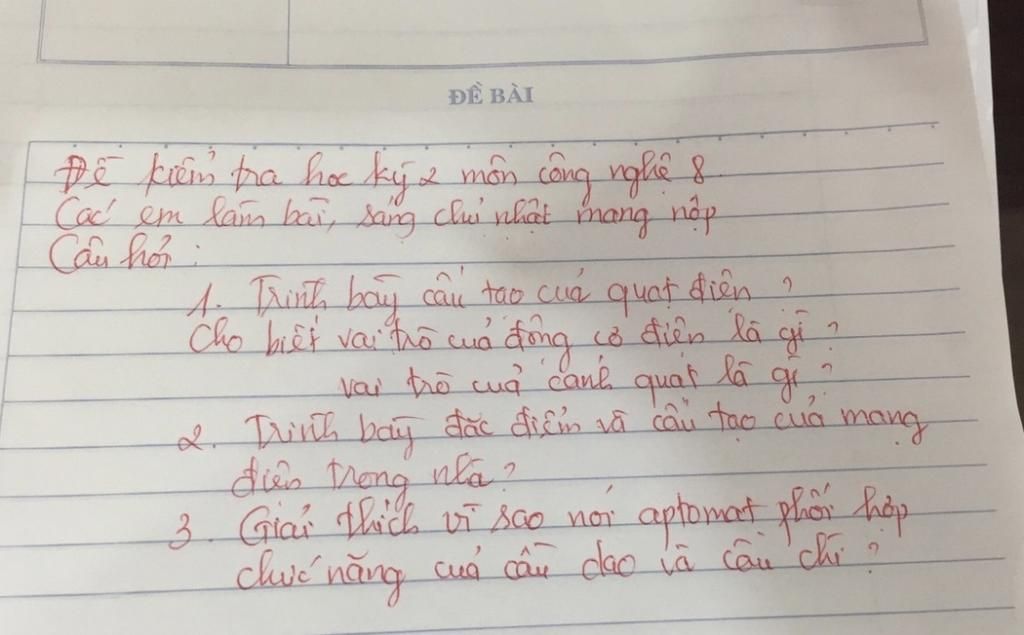 ĐỀ BÀI
Đề kiểm tra học kỳ 2 môn công nghệ 8
Các em làm bài, sáng chủ nhật mang nộp
Câu hỏi :
1. Trình bày cấu tạo của quạt điện ?
Cho biết vai trò của động cơ điện là gì ?
vai trò của cánh quạt là gì ?
2. Trình bày đặc điểm và cấu tạo của mạng
điện trong nhà ?
3. Giải thích vì sao nói aptomat phối hợp
chức năng của cầu dao và cầu chì ?